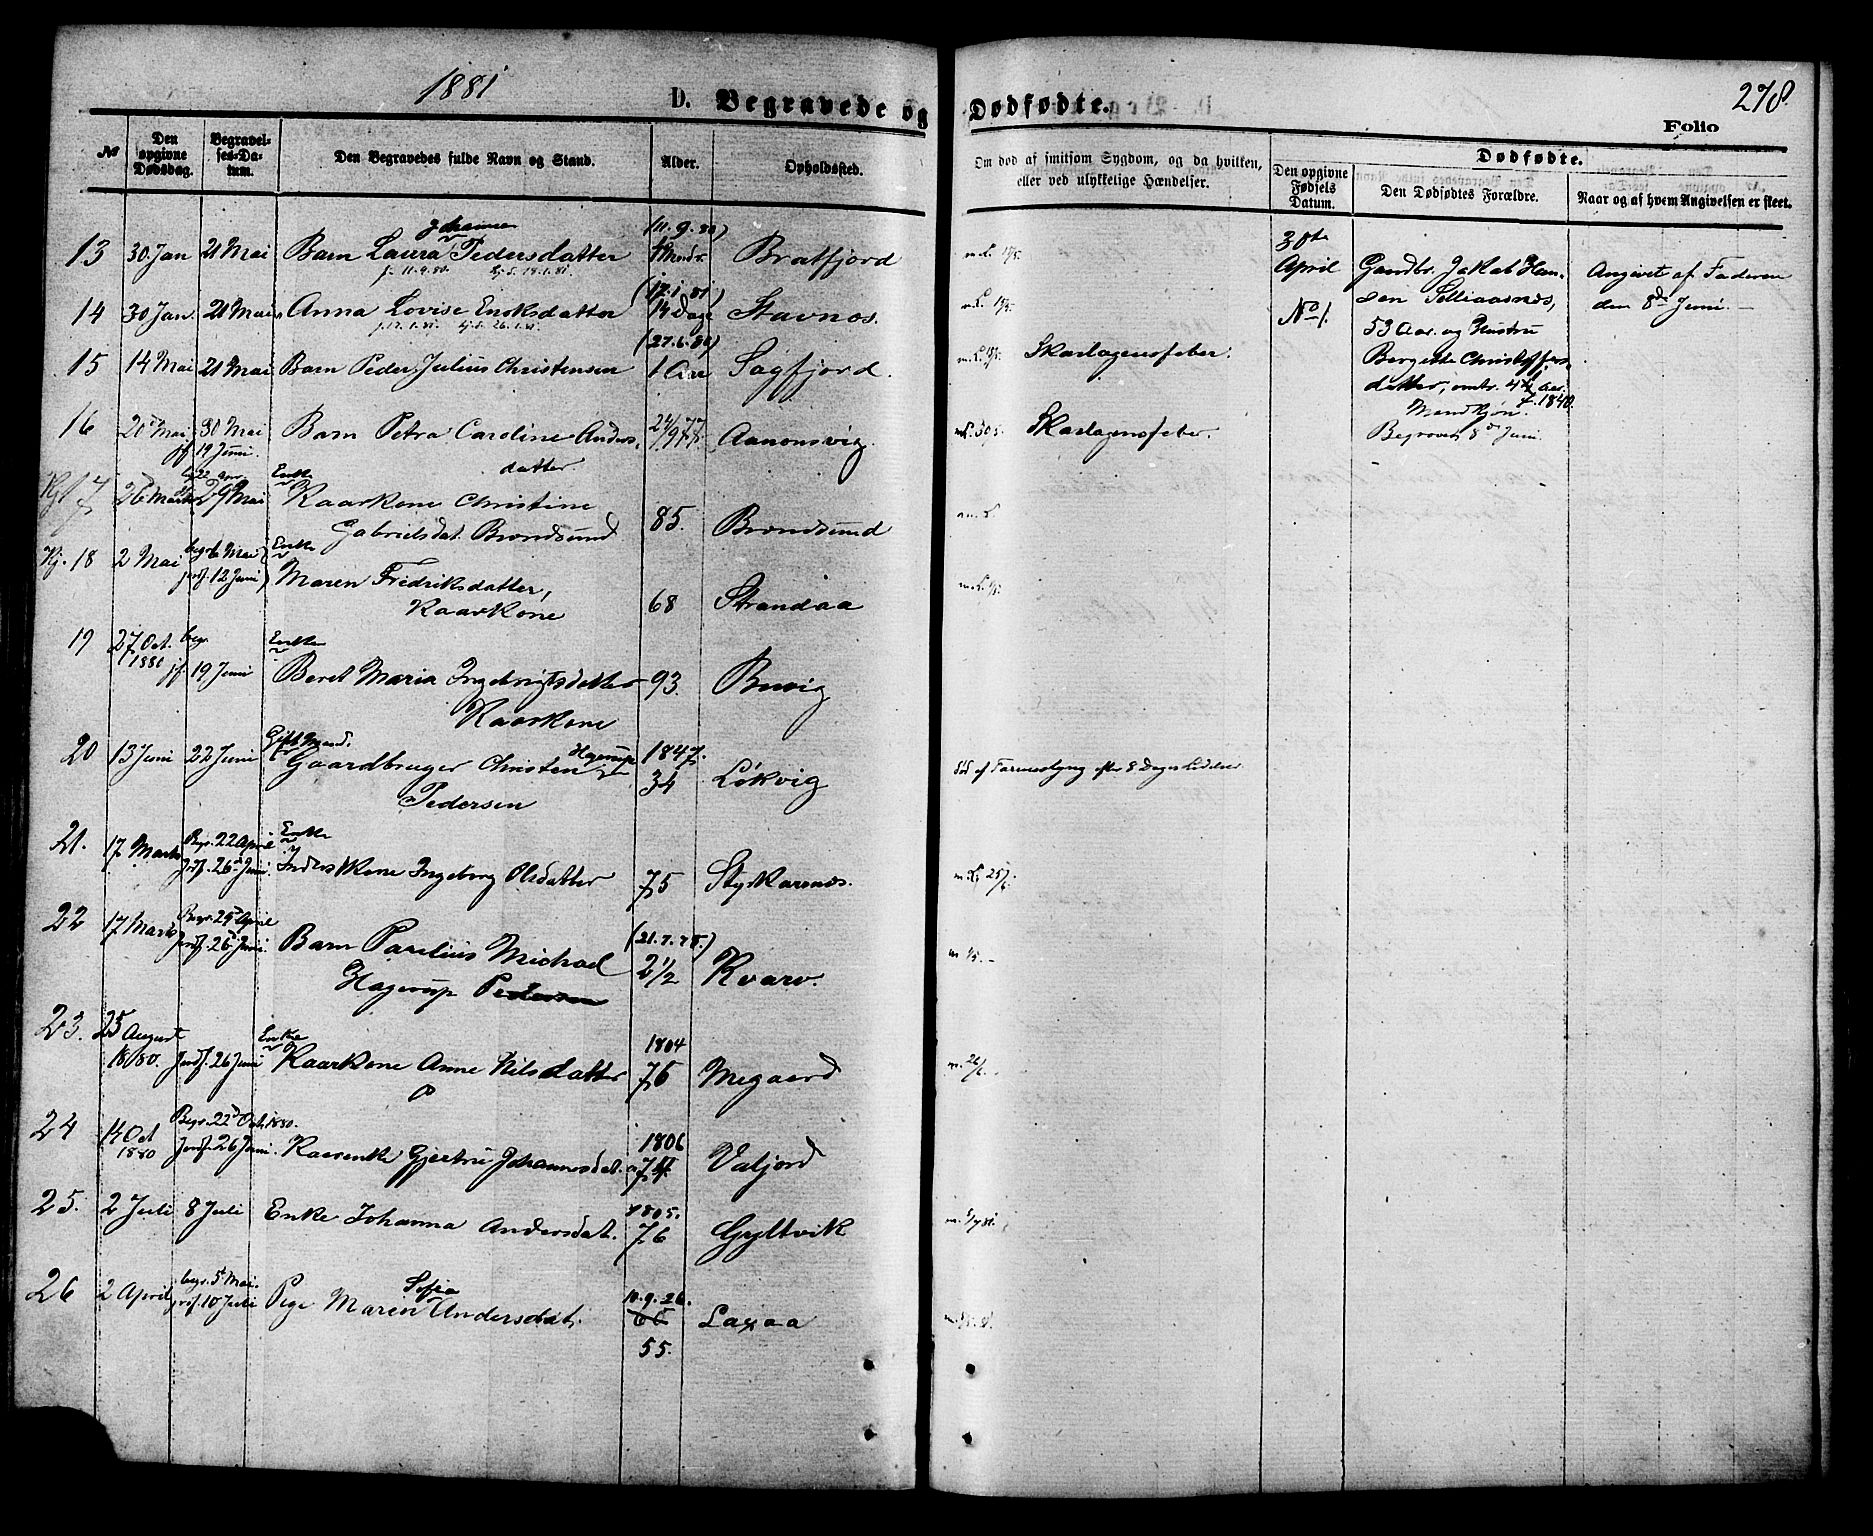 1881
D. Begravede og Dødfødte.
278
Folio
No
Den opgivne Dødsdag.
Begravelses-Datum.
Den Begravedes fulde Navn og Stand.
Alder.
Opholdssted.
Om død af smitsom Sygdom, og da hvilken, eller ved ulykkelige Hændelser.
Dødfødte.
Den opgivne Fødsels Datum.
Den Dødfødtes Forældre.
Naar og af hvem Angivelsen er skeet.
Johanna (11.9.80)
13 30 Jan 21 Mai Barn Laura Pedersdatter 4 Mndr. Bratfjord
f. 11.9.80. Kj. 18.1.81.
(17.1.81)
14 30 Jan 21 Mai Anna Lovise Enoksdatter 14 Dage Stavnæs.
f. 17.1.81. hj. 26.1.81.
(27.6.80)
15 14 Mai 21 Mai Barn Peder Julius Christensen 1 Aar Sagfjord. Skarlagensfeber.
16 20 Mai 30 Mai Barn Petra Caroline Anders- 24/9 77 Aanonsvig. Skarlagensfeber.
jf 19 Juni. datter.
Enke
17 26 Marts 29 Mai Kaarkone Christine
Gabrielsdat. Brændsund 85. Brændsund
Kj. 18 2 Mai begr 6 Mai Enke
jordf. 12 Juni Maren Fredriksdatter,
Kaarkone 68 Strandaa
19 27 Oct. 1880 begr. Enke
jf. 19 Juni Beret Maria Ingebrigtsdatter 93. Buvig
Kaarkone
Gift Mand.
20 13 Juni 22 Juni Gaardbruger Christen Hagerup 1847. Løkvig
Pedersen 34 død af Tarmeslyng efter 8 Dages Lidelser
21. 17 Marts Begr. 22 April Enke
Jordf. 26 Juni. Inderstkone Ingeborg Olsdatter 75 Styrkarsnæs.
22 17 Marts Begr. 25 April
Jordf. 26 Juni. Barn Parelius Michael (21.7.78.)
Hagerup Pedersen 2 1/2 Kvarv.
23. 25 August 1880. Jordf. 26 Juni Enke
Kaarkone Anne Nilsdatter 1804 76 Megaard
24 14 Oct 1880 Begr. 22 Oct. 1880.
Jordf. 26 Juni. Kaarenke Gjertru Johannesdat. 1806 74 Valjord
25. 2 Juli 8 Juli Enke Johanna Andersdat. 1805. 76 Gyltvik
26 2 April begr. 5 Mai. Sofia
jordf. 10 Juli Pige Maren Andersdat. 10.9.26. Laxaa
55.
30te April
No 1.
Gaardbr. Jakob Han-
sen Selliaasnæs,
53 Aar. og Hustru
Bergitte Christoffers-
datter, omtr. 41 Aar.
f. 1840.
Mandkjøn.
Begravet 8 Juni.
Angivet af Faderen
den 8de Juni.